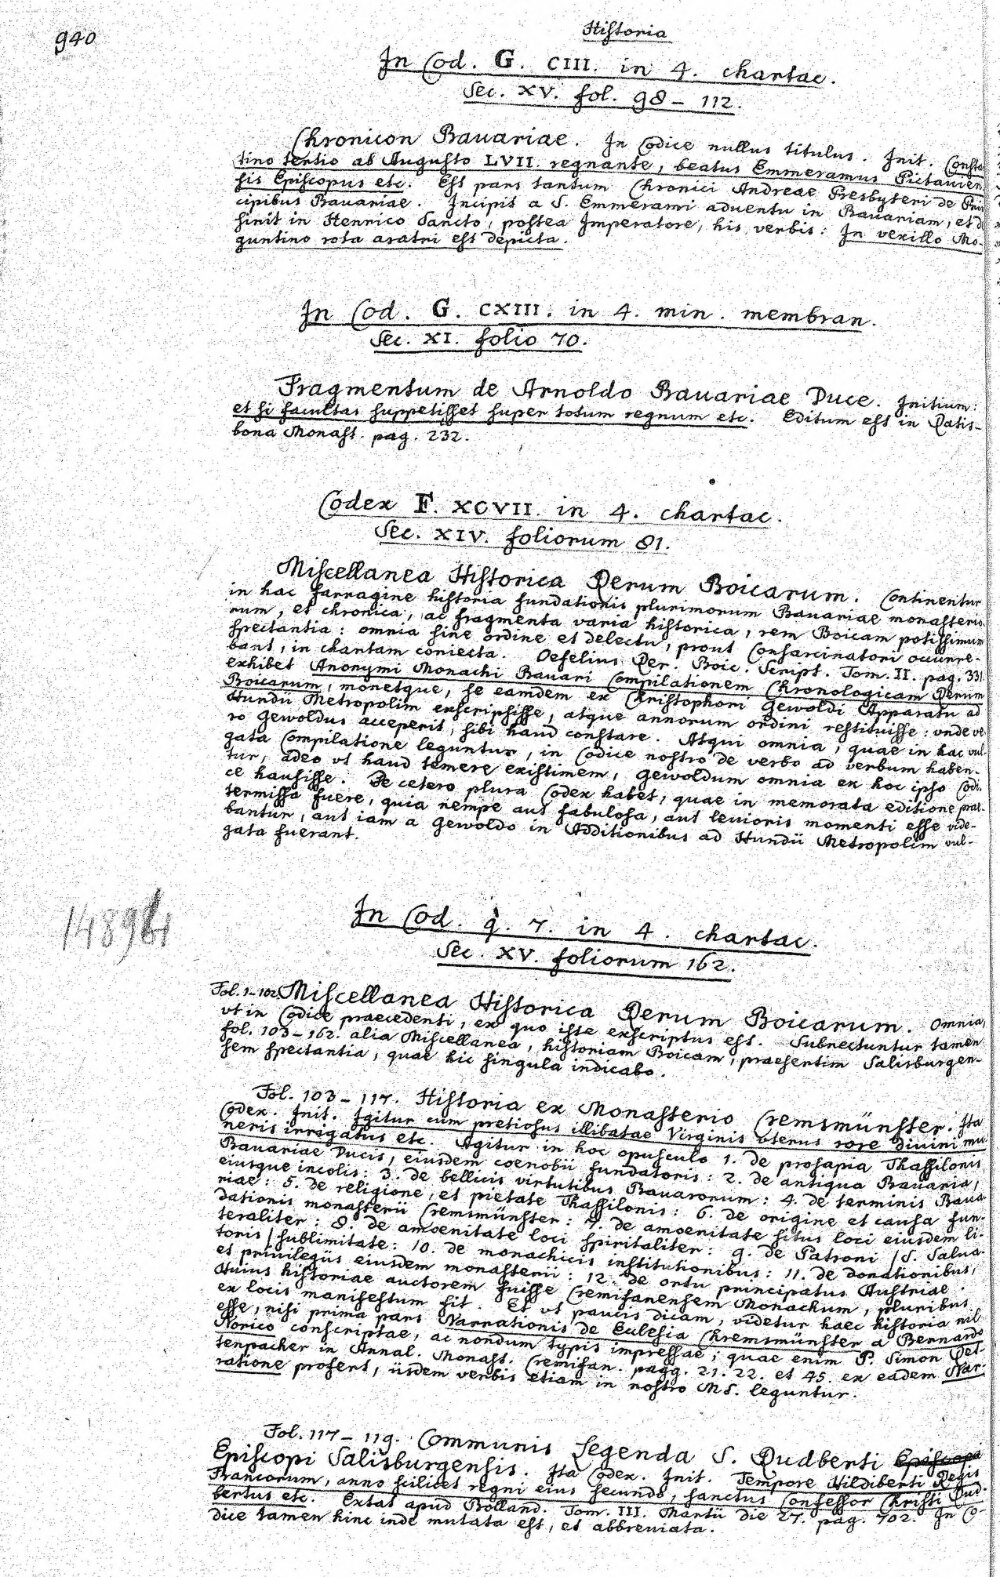 940
Historia
In Cod. G. CIII. in 4. chartac.
Sec. XV. fol. 98 – 112.
Chronicon Bavariae. In Codice nullus titulus. Init. Consta
tino tertio ab Augusto LVII. regnante, beatus Emmeramus Pictavien
sis Episcopus etc. Est pars tantum Chronici Andreae Presbyteri de Prin
cipibus Bavariae. Incipit a S. Emmerami adventu in Bavariam, et d
sinit in Henrico Sancto, postea Imperatore, his verbis: In vexillo Mo-
guntino rota aratri est depicta.
In Cod. G. CXIII. in 4. min. membran.
Sec. XI. folio 70.
Fragmentum de Arnoldo Bavariae Duce. Initium:
et si facultas suppetisset super totum regnum etc. Editum est in Ratis-
bona Monast. pag. 232.
Codex F. XCVII. in 4. chartac.
Sec. XIV. foliorum 81.
Miscellanea Historica Rerum Boicarum. Continentur
in hac farragine historia fundationis plurimorum Bavariae monasterio
rum, et chronica, ac fragmenta varia historica, rem Boicam potissimum
spectantia: omnia sine ordine et delectu, prout Consarcinatori occurre-
bant, in chartam coniecta. Oefelius Rer. Boic. Script. Tom. II. pag. 331.
exhibet Anonymi Monachi Bavari Compilationem Chronologicam Rerum
Boicarum, monetque, se eamdem ex Christophori Gewoldi Apparatu ad
Hundii Metropolim exscripsisse, atque annorum ordini restituisse: unde ve
ro Gewoldus acceperit, sibi haud constare. Atqui omnia, quae in hac vul
gata Compilatione leguntur, in Codice nostro de verbo ad verbum haben-
tur, adeo ut haud temere existimem, Gewoldum omnia ex hoc ipso Codi
ce hausisse. De cetero plura Codex habet, quae in memorata editione praet.
termissa fuere, quia nempe aut fabulosa, aut levioris momenti esse vide-
bantur, aut iam a Gewoldo in Additionibus ad Hundii Metropolim vul-
gata fuerant.
In Cod. q. 7. in 4. chartac.
Sec. XV. foliorum 162.
Fol. 1–102 Miscellanea Historica Rerum Boicarum. Omnia,
ut in Codice praecedenti, ex quo iste exscriptus est. Subnectuntur tamen
fol. 103 – 162. alia Miscellanea, historiam Boicam, praesertim Salisburgen-
sem spectantia, quae hic singula indicabo.
Fol. 103 – 117. Historia ex Monasterio Cremsmünster. Ita
Codex. Init. Igitur cum pretiosus illibatae Virginis uterus rore divini mu
neris irrigatus etc. Agitur in hoc opusculo 1. de prosapia Thassilonis
Bavariae Ducis, eiusdem coenobii fundatoris: 2. de antiqua Bavaria,
eiusque incolis: 3. de bellicis virtutibus Bavarorum: 4. de terminis Bava
riae: 5. de religione, et pietate Thassilonis: 6. de origine et causa fun-
dationis monasterii Cremsmünster: 7. de amoenitate situs loci eiusdem li-
teraliter: 8. de amoenitate loci spiritaliter: 9. de Patroni (S. Salva
toris) sublimitate: 10. de monachicis institutionibus: 11. de donationibus,
et privilegiis eiusdem monasterii: 12. de ortu principatus Austriae.
Huius historiae auctorem fuisse Cremisanensem Monachum, pluribus
ex locis manifestum fit. Et ut paucis dicam, videtur haec historia nil
esse, nisi prima pars Narrationis de Ecclesia Chremsmünster a Bernardo
Norico conscriptae, ac nondum typis impressae; quae enim P. Simon Ret
tenpacher in Annal. Monast. Cremifan. pagg. 21. 22. et 45. ex eadem Nar-
ratione profert, iisdem verbis etiam in nostro MS. leguntur.
Fol. 117 – 119. Communis Legenda S. Rudberti Episcopi
Episcopi Salisburgensis. Ita Codex. Init. Tempore Hildiberti Regis
Francorum, anno scilicet regni eius secundo, sanctus Confessor Christi Rud-
bertus etc. Extat apud Bolland. Tom. III. Martii die 27. pag. 702. In Co-
dice tamen hinc inde mutata est, et abbreviata.